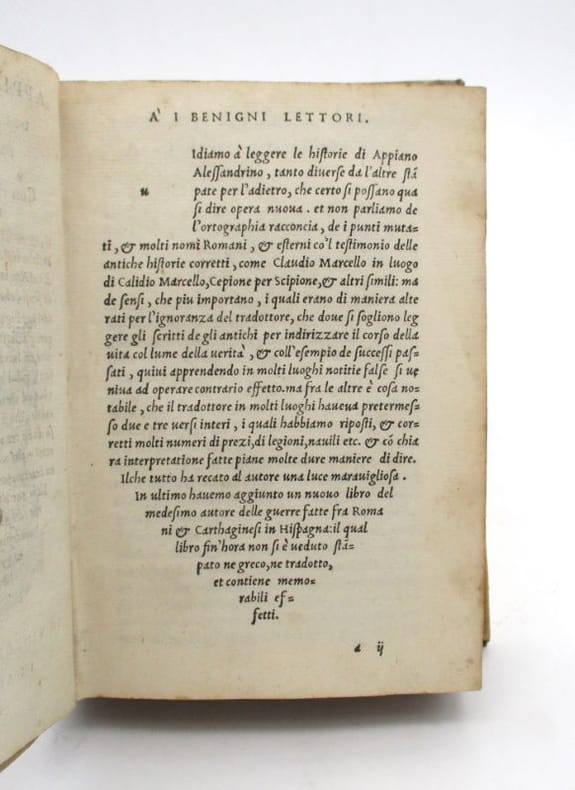 A' I BENIGNI LETTORI.
Idiamo à leggere le historie di Appiano
Alessandrino, tanto diverse da l'altre stã
u pate per l'adietro, che certo si possano qua
si dire opera nuova. et non parliamo de
l'ortographia racconcia, de i punti muta-
ti, & molti nomi Romani, & esterni co'l testimonio delle
antiche historie corretti, come Claudio Marcello in luogo
di Calidio Marcello, Cepione per Scipione, & altri simili: ma
de sensi, che piu importano, i quali erano di maniera alte
rati per l'ignoranza del tradottore, che dove si sogliono leg
gere gli scritti de gli antichi per indirizzare il corso della
uita col lume della verità, & coll'esempio de successi pas-
sati, quiui apprendendo in molti luoghi notitie false si ue
niua ad operare contrario effetto. ma fra le altre è cosa no-
tabile, che il tradottore in molti luoghi haueua pretermes-
so due e tre versi interi, i quali habbiamo riposti, & cor-
retti molti numeri di prezi, di legioni, nauili etc. & cõ chia
ra interpretatione fatte piane molte dure maniere di dire.
Ilche tutto ha recato al autore una luce marauigliosa.
In ultimo hauemo aggiunto un nuouo libro del
medesimo autore delle guerre fatte fra Roma
ni & Carthaginesi in Hispagna: il qual
libro fin'hora non si è veduto stã-
pato ne greco, ne tradotto,
et contiene memo-
rabili ef-
fetti.
a ij